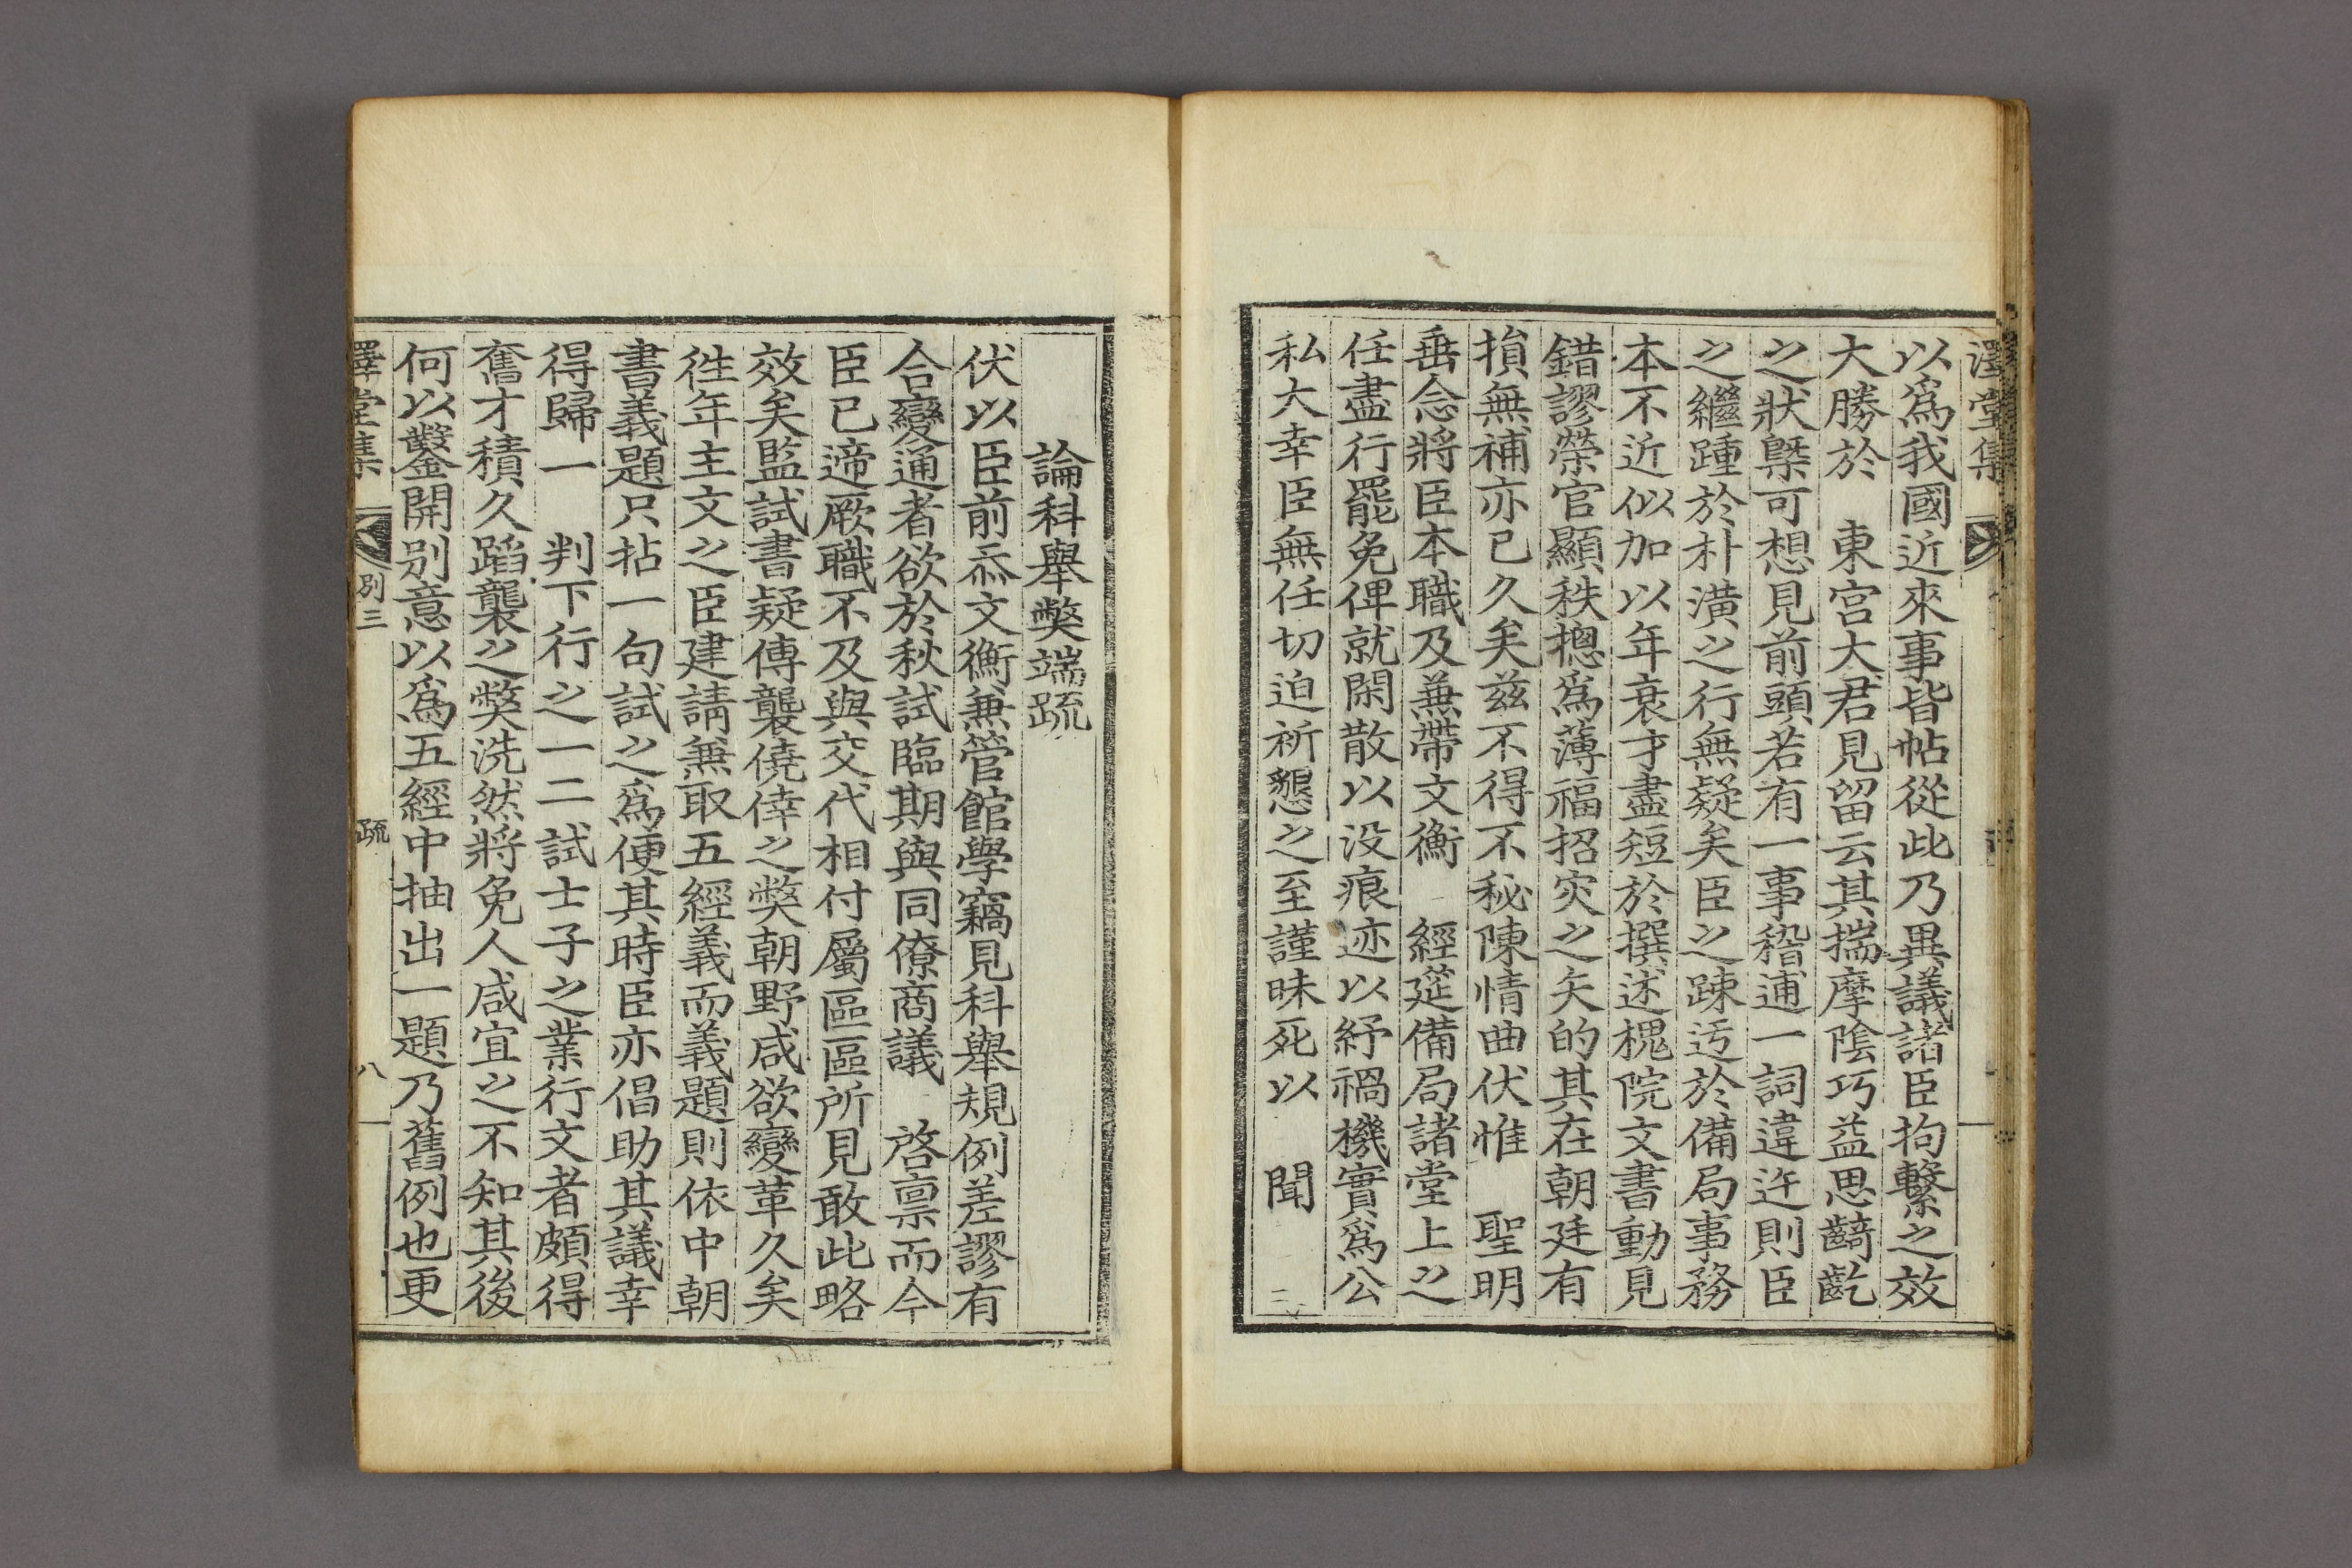 澤堂集
以爲我國近來事皆帖從此乃異議諸臣拘繫之效
大勝於 東宮大君見留云其揣摩陰巧益思齮齕
之狀槩可想見前頭若有一事稽逋一詞違迕則臣
之繼踵於朴潢之行無疑矣臣之踈迃於備局事務
本不近似加以年衰才盡短於撰述槐院文書動見
錯謬榮官顯秩摠爲薄福招灾之矢的其在朝廷有
損無補亦已久矣兹不得不秘陳情曲伏惟 聖明
垂念將臣本職及兼帶文衡 經筵備局諸堂上之
任盡行罷免俾就閑散以没痕迹以紓禍機實爲公
私大幸臣無任切迫祈懇之至謹昧死以 聞
論科舉獘端疏
伏以臣前忝文衡兼管館學竊見科舉規例差謬有
合變通者欲於秋試臨期與同僚商議 啓稟而今
臣已遞厥職不及與交代相付屬區區所見敢此略
效矣監試書疑傳襲僥倖之獘朝野咸欲變革久矣
徃年主文之臣建請兼取五經義而義題則依中朝
書義題只拈一句試之爲便其時臣亦倡助其議幸
得歸一 判下行之一二試士子之業行文者頗得
奮才積久蹈襲之獘洗然將免人咸宜之不知其後
何以鑿開別意以爲五經中抽出一題乃舊例也更
澤堂集 別三 疏 八